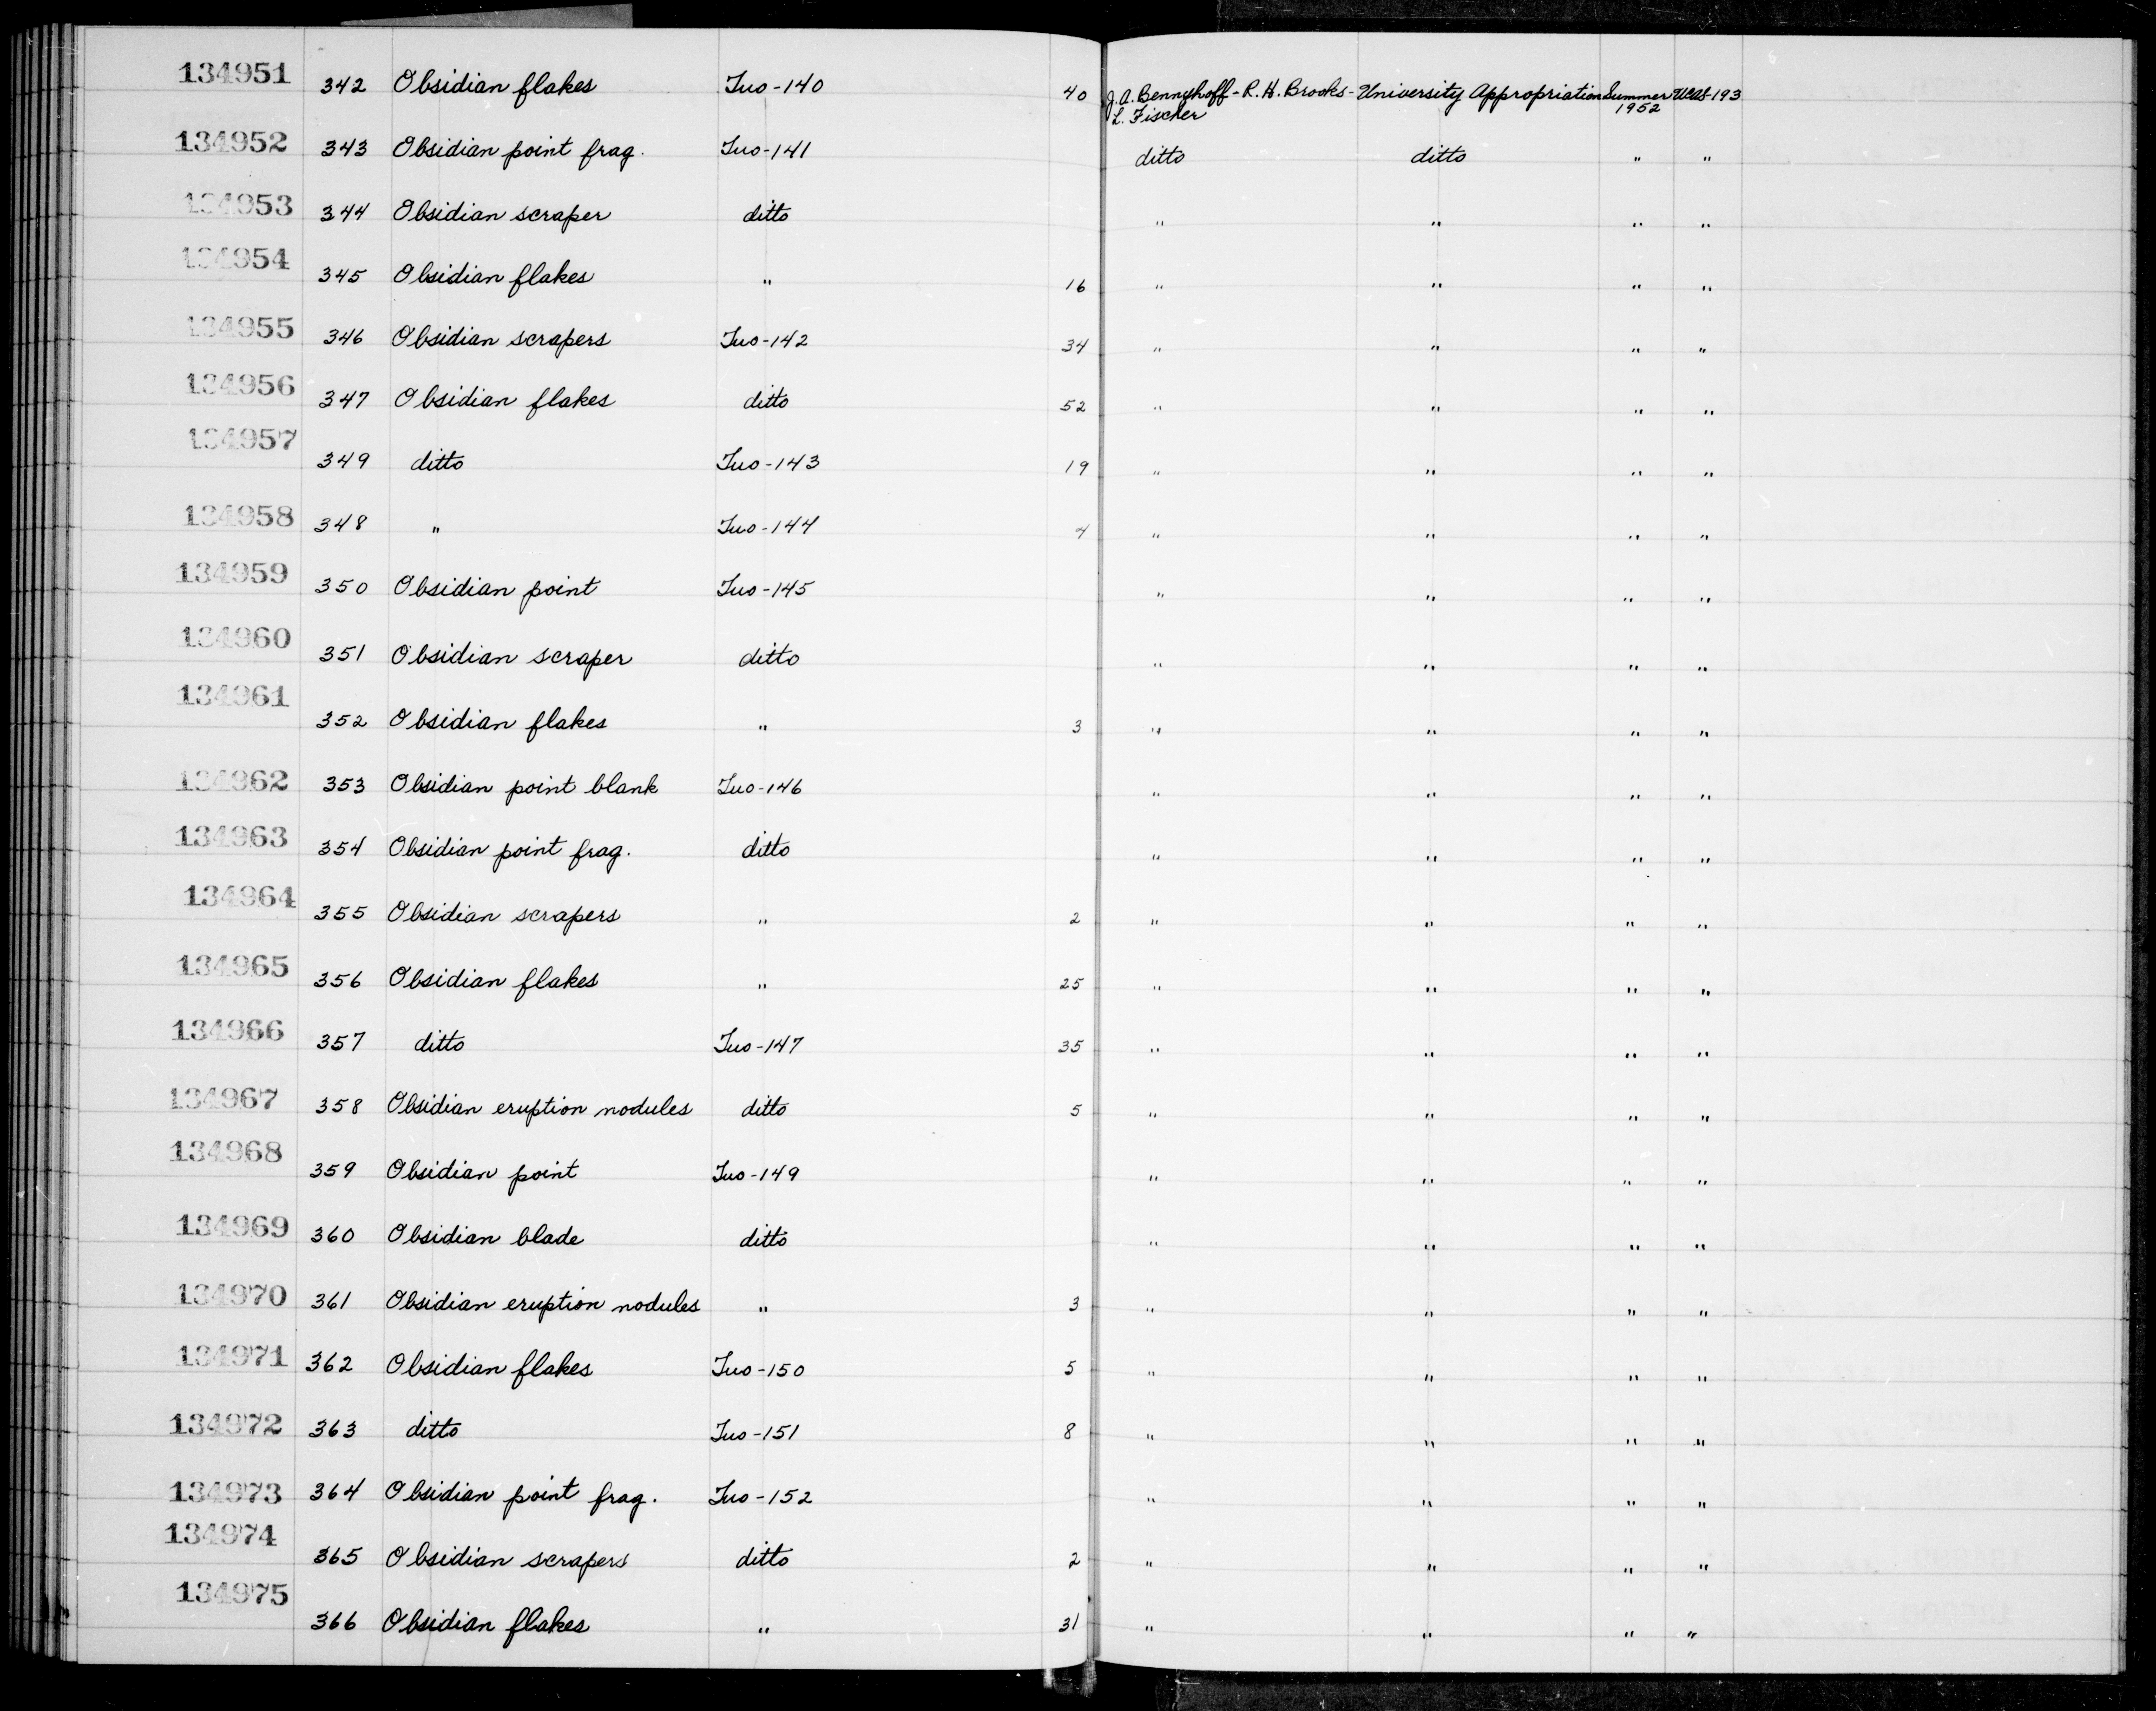 134951 342 Obsidian flakes Tuo-140 40 J.A. Bennyhoff-R.H. Brooks- University Appropriation Summer UCAS-193
L. Fischer 1952
134952 343 Obsidian point frag. Tuo-141 ditto ditto " "
134953 344 Obsidian scraper ditto " " " "
134954 345 Obsidian flakes " 16 " " " "
134955 346 Obsidian scrapers Tuo-142 34 " " " "
134956 347 Obsidian flakes ditto 52 " " " "
134957 349 ditto Tuo-143 19 " " " "
134958 348 " Tuo-144 4 " " " "
134959 350 Obsidian point Tuo-145 " " " "
134960 351 Obsidian scraper ditto " " " "
134961 352 Obsidian flakes " 3 " " " "
134962 353 Obsidian point blank Tuo-146 " " " "
134963 354 Obsidian point frag. ditto " " " "
134964 355 Obsidian scrapers " 2 " " " "
134965 356 Obsidian flakes " 25 " " " "
134966 357 ditto Tuo-147 35 " " " "
134967 358 Obsidian eruption nodules ditto 5 " " " "
134968 359 Obsidian point Tuo-149 " " " "
134969 360 Obsidian blade ditto " " " "
134970 361 Obsidian eruption nodules " 3 " " " "
134971 362 Obsidian flakes Tuo-150 5 " " " "
134972 363 ditto Tuo-151 8 " " " "
134973 364 Obsidian point frag. Tuo-152 " " " "
134974 365 Obsidian scrapers ditto 2 " " " "
134975 366 Obsidian flakes " 31 " " " "